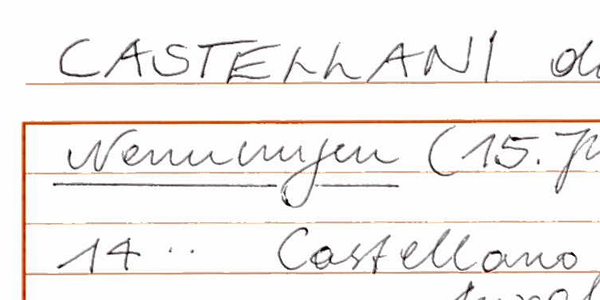 CASTELLANI
Nenningen (15.
14·· Castellano